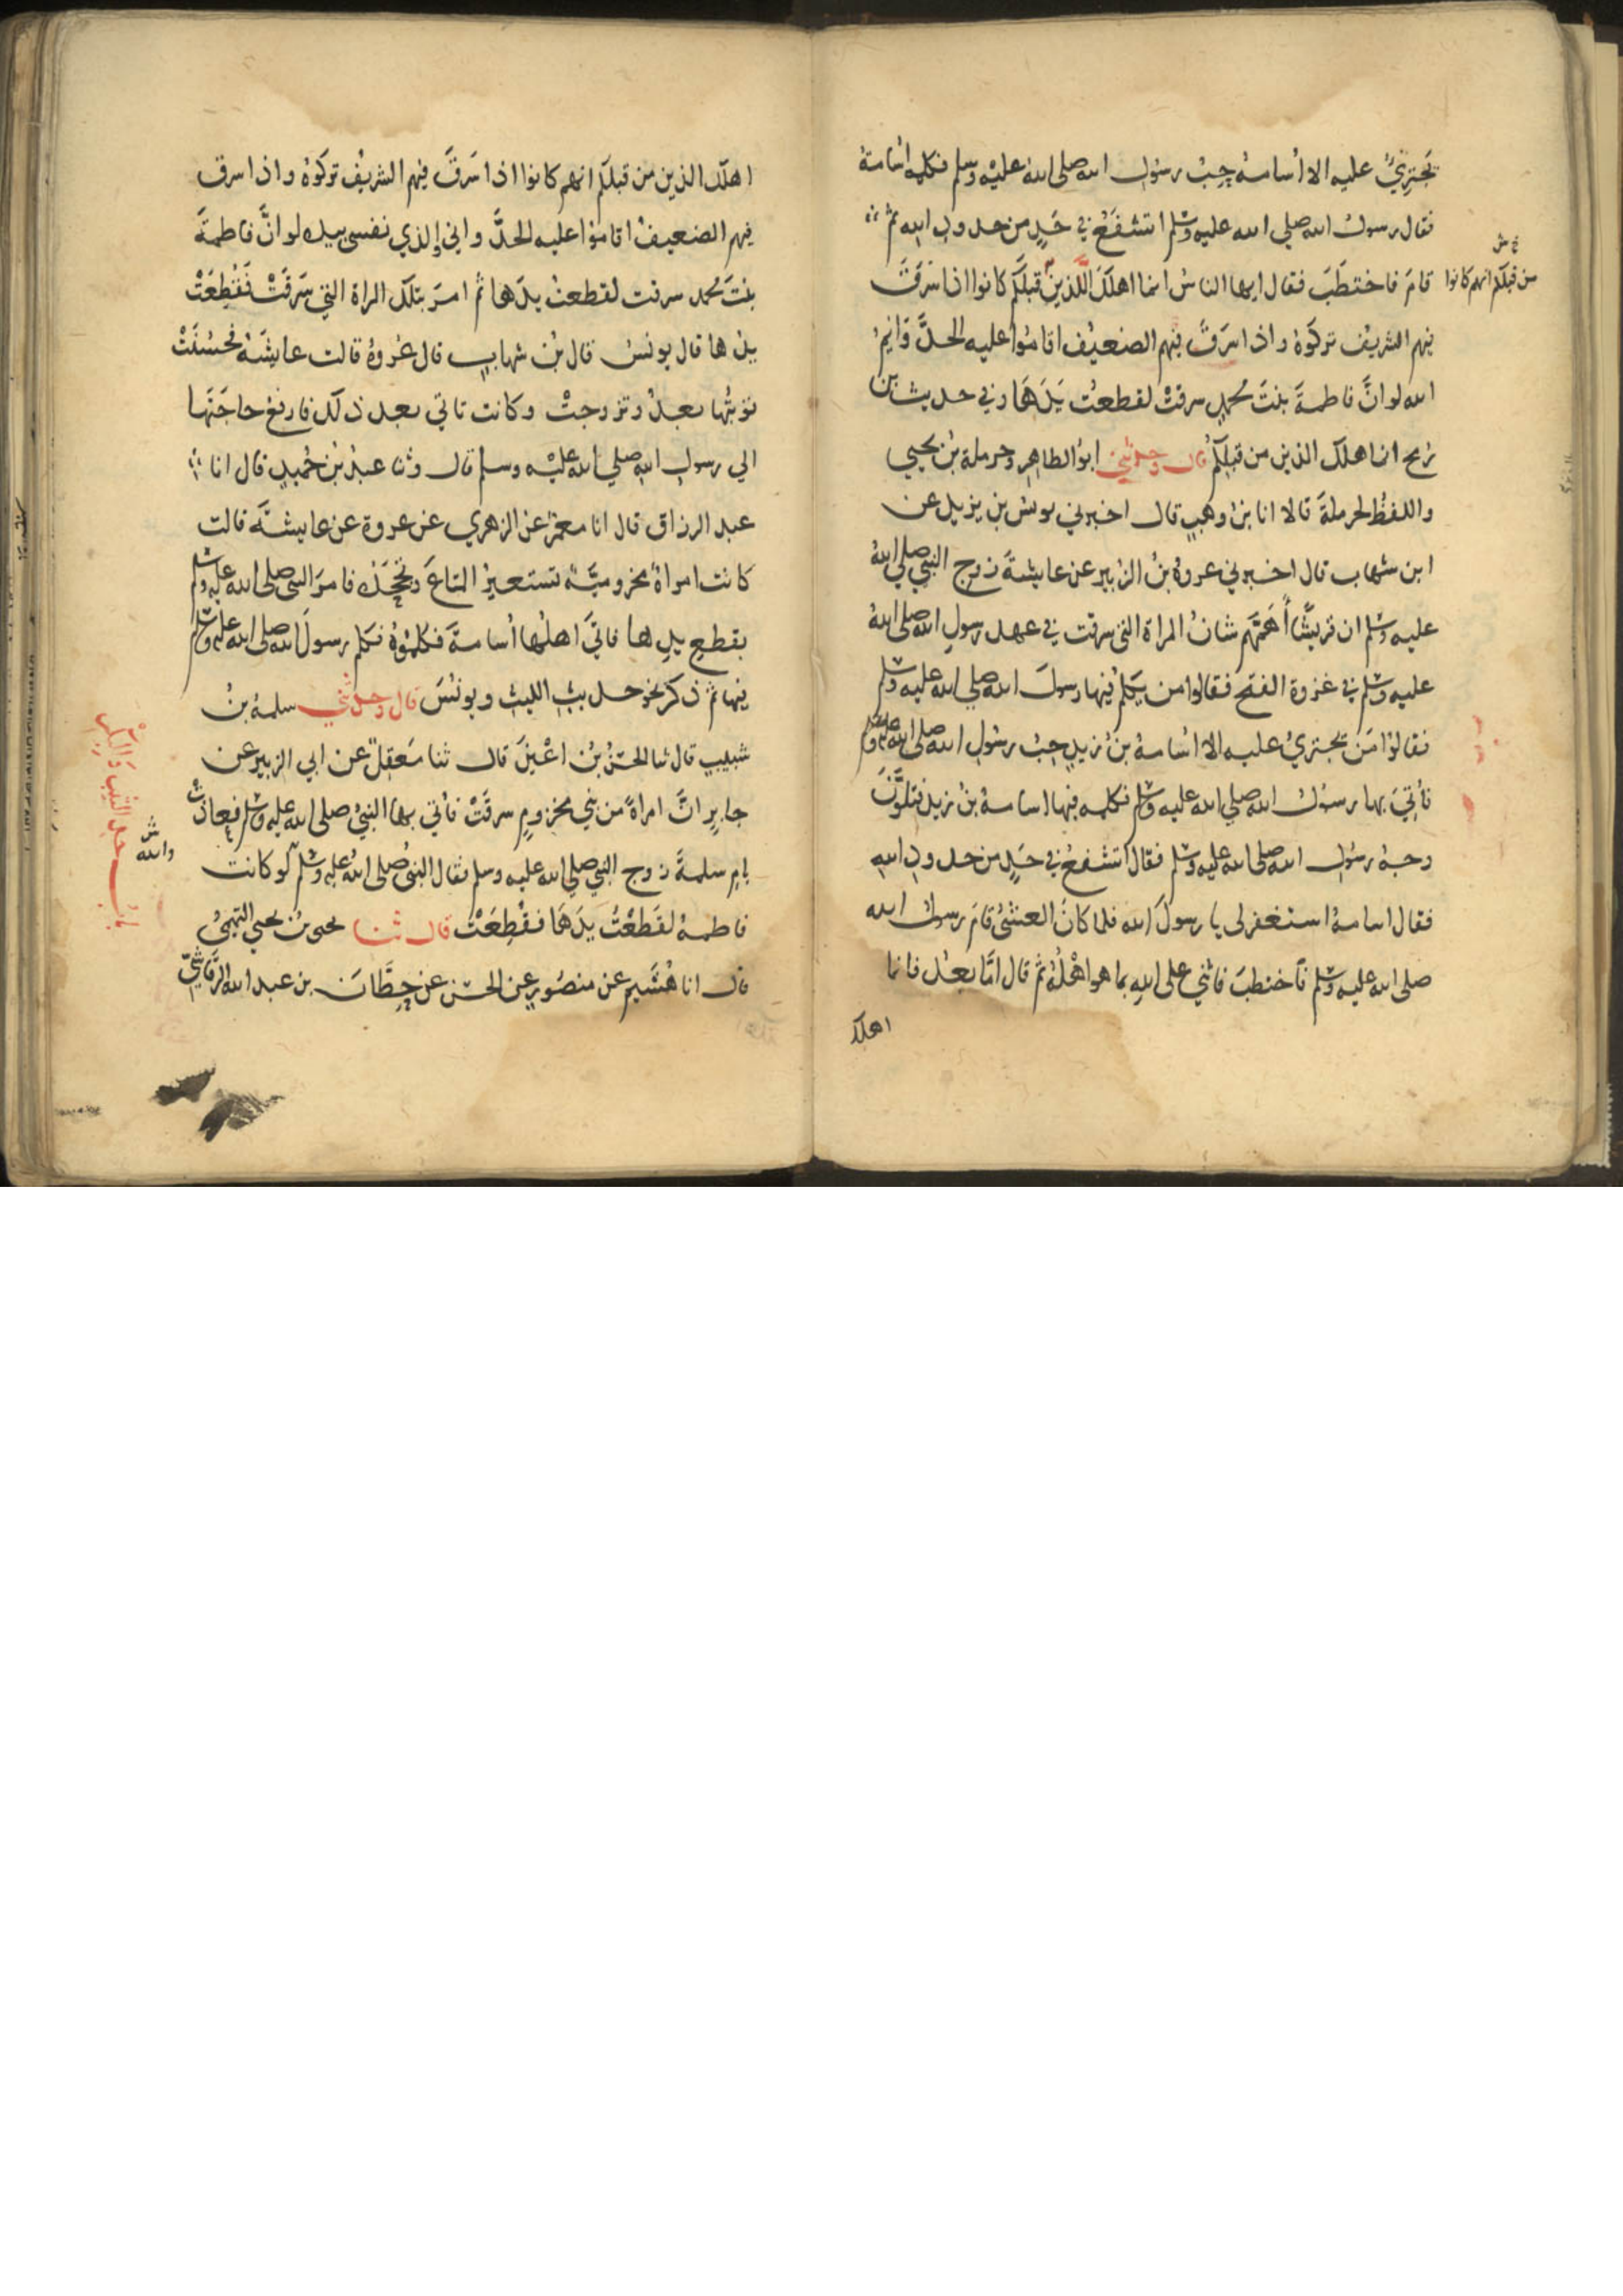 يَجتَرِئُ عليه الا أسامة حِبُّ رسول الله صلى الله عليه وسلم فكلمه أسامة
فقال رسول الله صلى الله عليه وسلم اتشفَعُ في حَدٍ من حدود الله ثم
قامَ فاختطَبَ فقال ايها الناسُ انما اهلكَ الَّذينَ قبلكم كانوا اذا سَرَقَ
من قبلكم انهم كانوا
فيهم الشريف تركوهُ واذا سَرَقَ فيهم الضعيف اقاموا عليه الحدَّ وَايمُ
الله لو انَّ فاطمةَ بنتَ محمدٍ سرقتْ لقطعتُ يَدَهَا وفي حديث ابن
رُمح انما هلك الذين من قبلكم قال وحدثني ابو الطاهرِ وحرملة بن يحيى
واللفظُ لحرملةَ قالا انا بن وهبٍ قال اخبرني يونس بن يزيد عن
ابن شهاب قال اخبرني عروةُ بنُ الزبير عن عايشةَ زوج النبي صلى الله
عليه وسلم ان قريشًا أهَمَّهم شانُ المراة التي سرقت في عهد رسولِ الله صلى الله
عليه وسلم في غزوة الفتح فقالوا من يكلم فيها رسولَ الله صلى الله عليه وسلم
فقالوا مَن يجترئُ عليه الا اُسامةُ بن زيدٍ حِبُّ رسولِ الله صلى الله عليه وسلم
فأُتِيَ بها رسولُ الله صلى الله عليه وسلم فكلمه فيها اسامةُ بنُ زيد فتلوَّنَ
وجهُ رسول الله صلى الله عليه وسلم فقال اتشفعُ في حَدٍ من حدود اللهِ
فقال اسامةُ استغفر لي يا رسولَ الله فلما كانَ العشيُّ قامَ رسولُ الله
صلى الله عليه وسلم فاختطبَ فاثنى على اللهِ بما هو اهْلُهُ ثم قال امَّا بعدُ فانما
اهلك
اهلك الذين من قبلكم انهم كانوا اذا سَرَقَ فيهم الشريفُ تركوهُ واذا سرق
فيهم الضعيفُ اقاموا عليه الحدَّ واني والذي نفسي بيده لو انَّ فاطمةَ
بنتَ محمد سرقت لقطعتُ يدَها ثم امرَ بتلك المراة التي سَرَقَتْ فَقُطِعَتْ
يدُها قال يونسُ قال بنُ شهابٍ قال عُروةُ قالت عايشَةُ فحَسُنَتْ
توبتُها بعدُ وتزوجتْ وكانت تاتي بعد ذلك فارفعُ حاجَتَها
الى رسول الله صلى الله عليه وسلم قال وثنا عبدُ بنُ حُميدٍ قال انا
عبد الرزاق قال انا معمرٌ عن الزهري عن عروة عن عايشةَ قالت
كانت امراةٌ مخزوميَّةٌ تستعيرُ المتاعَ وتَجْحَدُه فامرَ النبي صلى الله عليه وسلم
بقطعِ يدِها فاتَى اهلُها أُسامةَ فكلموهُ فكلم رسولَ الله صلى الله عليه وسلم
فيها ثم ذكر نحو حديث الليثِ ويونُسَ قال وحدثني سلمةُ بنُ
شبيبٍ قال ثنا الحسَنُ بنُ اعْيَنَ قال ثنا مَعقِلٌ عن ابي الزبير عن
جابرٍ انَّ امراةً من بني مخزومٍ سرقَتْ فأُتي بها النبيُّ صلى الله عليه وسلم فعاذَتْ
بامِ سلمةَ زوج النبي صلى الله عليه وسلم فقال النبيُ صلى الله عليه وسلم لو كانت
والله
فاطمةُ لقَطَعْتُ يدَهَا فَقُطِعَتْ قال ثنا يحيى بنُ يحيى التميميُّ
قال انا هُشَيم عن منصُورٍ عن الحسن عن حِطَّانَ بن عبد الله الرَّقاشِيِّ
بابُ حد الثيب والبكر